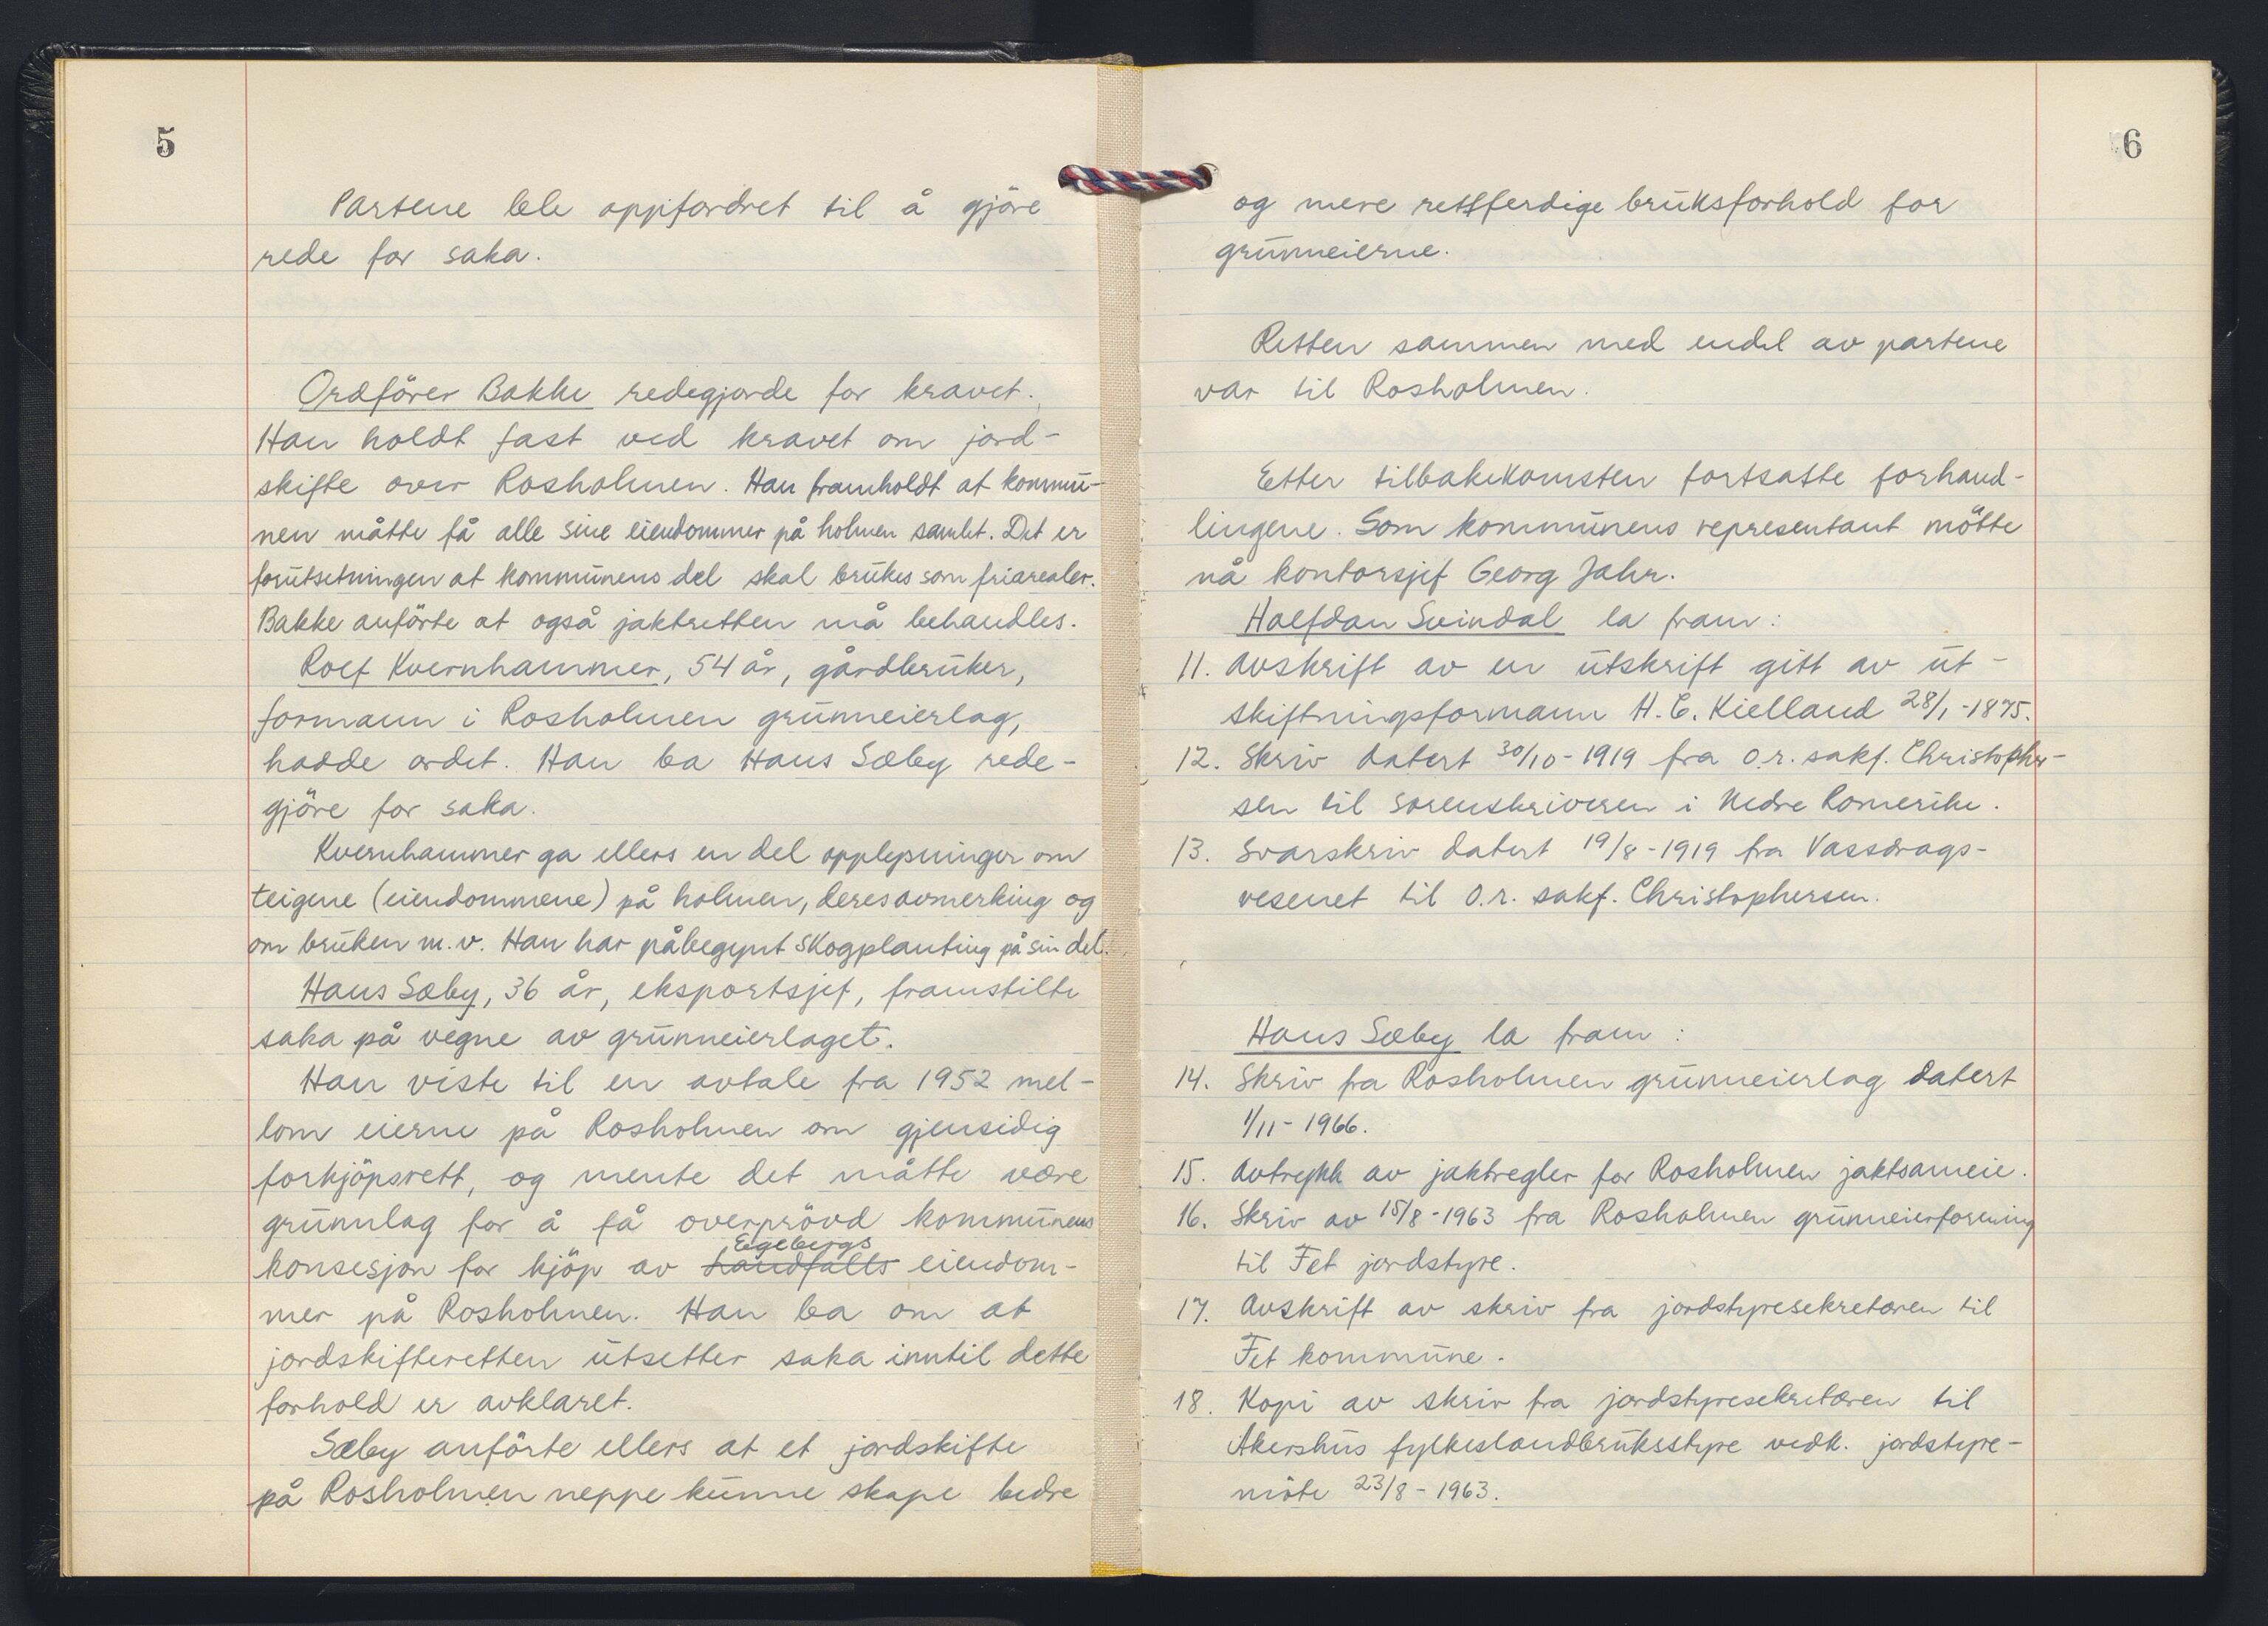 5
Partene ble oppfordret til å gjöre
rede for saka.
Ordförer Bakke redegjorde for kravet.
Han holdt fast ved kravet om jord-
skifte over Rosholmen. Han framholdt at kommu-
nen måtte få alle sine eiendommer på holmen samlet. Det er
forutsetningen at kommunens del skal brukes som friarealer.
Bakke anförte at også jaktretten må behandles.
Rolf Kvernhammer, 54 år, gårdbruker,
formann i Rosholmen grunneierlag,
hadde ordet. Han ba Hans Sæby rede-
gjöre for saka.
Kvernhammer ga ellers en del opplysninger om
teigene (eiendommene) på holmen, deres avmerking og
om bruken m.v. Han har påbegynt skogplanting på sin del.
Hans Sæby, 36 år, eksportsjef, framstilte
saka på vegne av grunneierlaget.
Han viste til en avtale fra 1952 mel-
lom eierne på Rosholmen om gjensidig
forkjöpsrett, og mente det måtte være
grunnlag for å få overprövd kommunens
Egebergs
konsesjon for kjöp av Landfalls eiendom-
mer på Rosholmen. Han ba om at
jordskifteretten utsetter saka inntil dette
forhold er avklaret.
Sæby anförte ellers at et jordskifte
på Rosholmen neppe kunne skape bedre
6
og mere rettferdige bruksforhold for
grunneierne.
Retten sammen med endel av partene
var til Rosholmen.
Etter tilbakekomsten fortsatte forhand-
lingene. Som kommunens representant mötte
nå kontorsjef Georg Jahr.
Halfdan Svindal la fram:
11. Avskrift av en utskrift gitt av ut-
skiftningsformann H. C. Kielland 28/1-1875.
12. Skriv datert 30/10-1919 fra o.r. sakf. Christopher-
sen til sorenskriveren i Nedre Romerike.
13. Svarskriv datert 19/8-1919 fra Vassdrags-
vesenet til o.r. sakf. Christophersen.
Hans Sæby la fram:
14. Skriv fra Rosholmen grunneierlag datert
1/11-1966.
15. Avtrykk av jaktregler for Rosholmen jaktsameie.
16. Skriv av 15/8-1963 fra Rosholmen grunneierforening
til Fet jordstyre.
17. Avskrift av skriv fra jordstyresekretæren til
Fet kommune.
18. Kopi av skriv fra jordstyresekretæren til
Akershus fylkeslandbruksstyre vedk. jordstyre-
möte 23/8-1963.